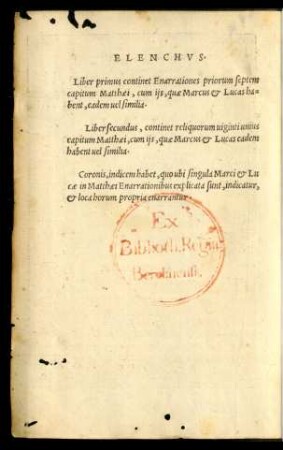 ELENCHVS.
Liber primus continet Enarrationes priorum septem
capitum Matthæi, cum ijs, quæ Marcus & Lucas ha-
bent, eadem uel similia.
Liber secundus, continet reliquorum uiginti unius
capitum Matthæi, cum ijs, quæ Marcus & Lucas eadem
habent uel similia.
Coronis, indicem habet, quo ubi singula Marci & Lu
cæ in Matthæi Enarrationibus explicata sunt, indicatur,
& loca horum propria enarrantur.
Ex
Biblioth. Regia
Berolinensi.